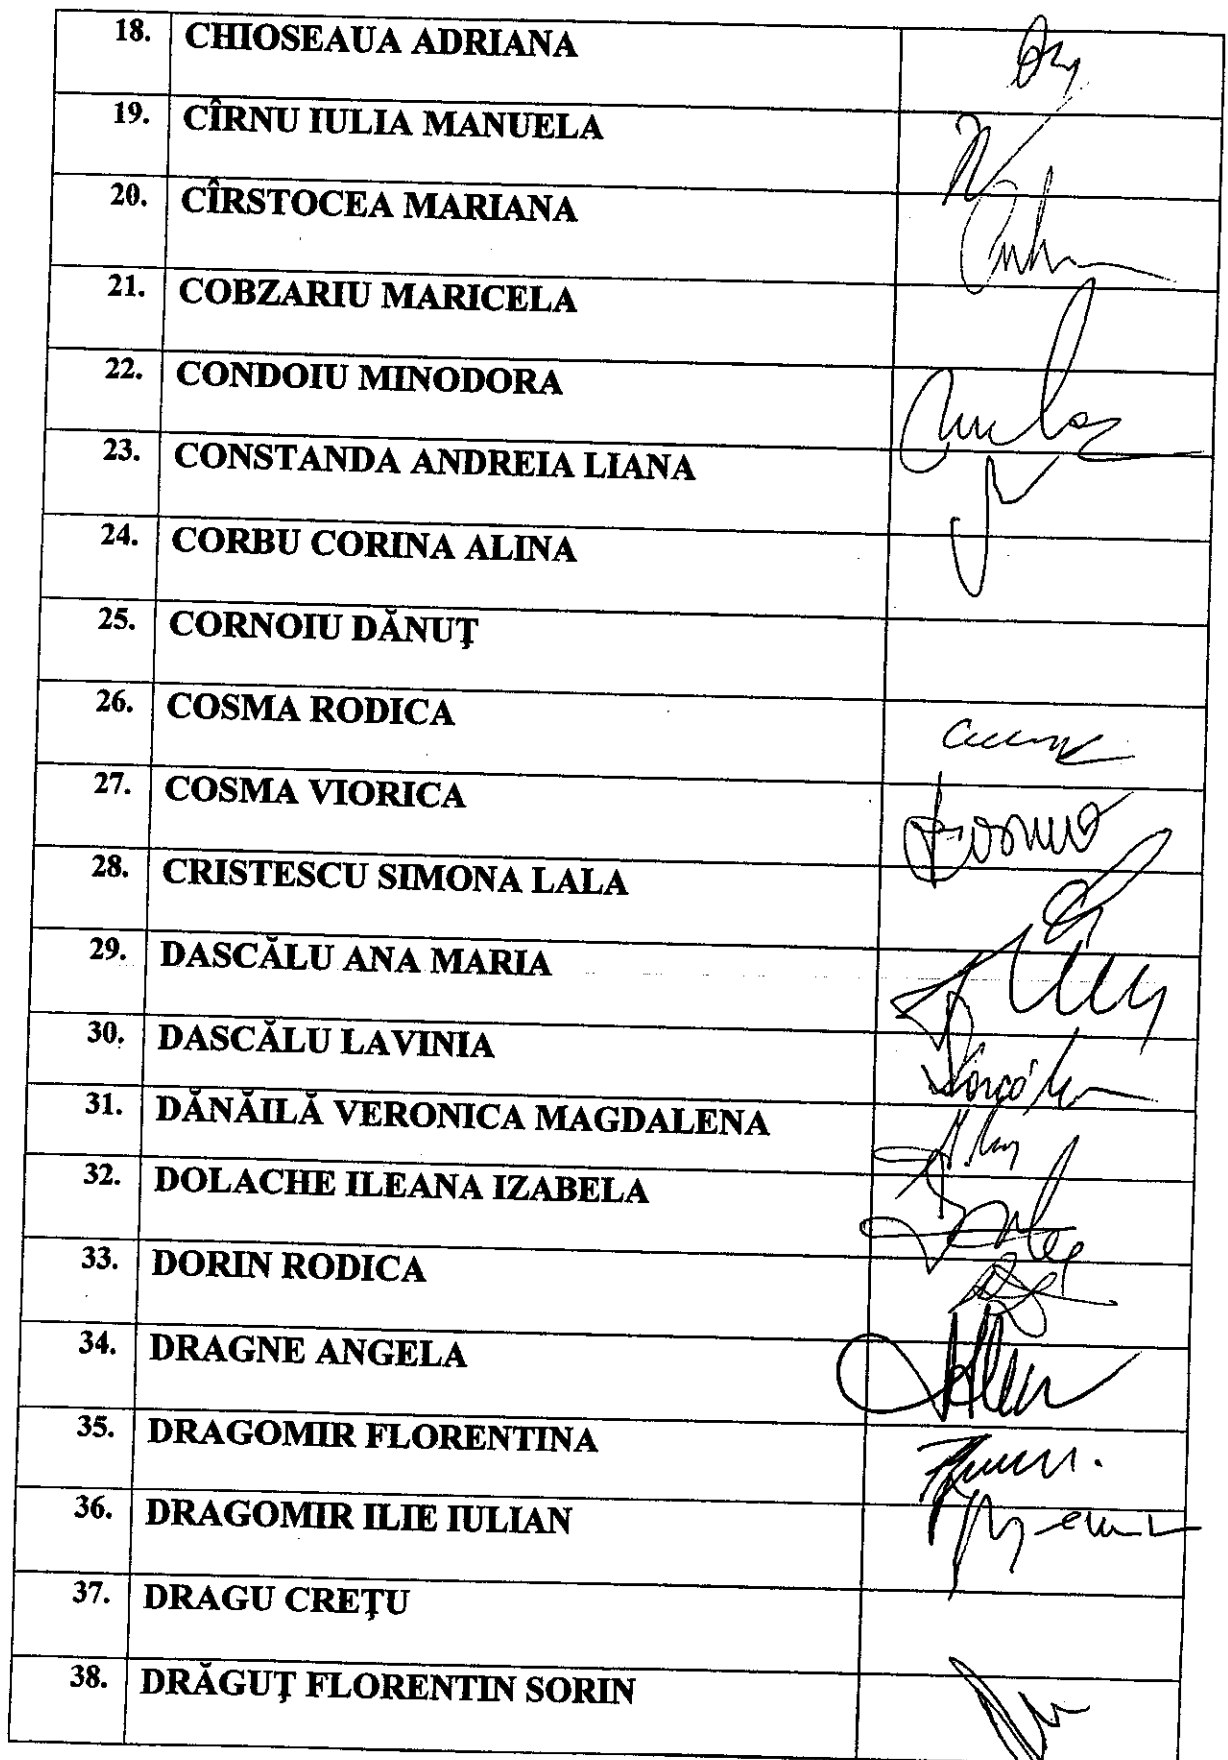 18. CHIOSEAUA ADRIANA
19. CÎRNU IULIA MANUELA
20. CÎRSTOCEA MARIANA
21. COBZARIU MARICELA
22. CONDOIU MINODORA
23. CONSTANDA ANDREIA LIANA
24. CORBU CORINA ALINA
25. CORNOIU DĂNUŢ
26. COSMA RODICA
27. COSMA VIORICA
28. CRISTESCU SIMONA LALA
29. DASCĂLU ANA MARIA
30. DASCĂLU LAVINIA
31. DĂNĂILĂ VERONICA MAGDALENA
32. DOLACHE ILEANA IZABELA
33. DORIN RODICA
34. DRAGNE ANGELA
35. DRAGOMIR FLORENTINA
36. DRAGOMIR ILIE IULIAN
37. DRAGU CREŢU
38. DRĂGUŢ FLORENTIN SORIN